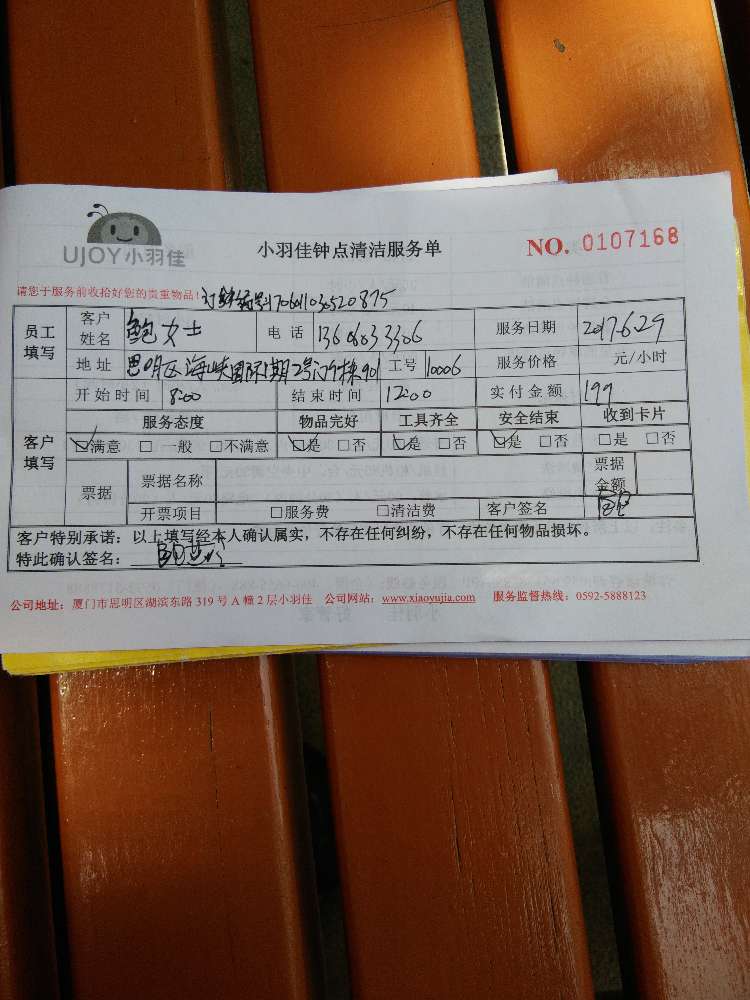 UJOY小羽佳
小羽佳钟点清洁服务单
NO. 0107168
请您于服务前收拾好您的贵重物品!
员工填写 客户姓名 鲍女士 电话 服务日期 2017.6.29
地址 思明区海峡国际 901 工号 10006 服务价格 元/小时
开始时间 8:00 结束时间 12:00 实付金额 199
客户填写 服务态度 物品完好 工具齐全 安全结束 收到卡片
☑满意 □一般 □不满意 ☑是 □否 ☑是 □否 ☑是 □否 □是 □否
票据 票据名称 票据金额
开票项目 □服务费 □清洁费 客户签名
客户特别承诺:以上填写经本人确认属实,不存在任何纠纷,不存在任何物品损坏。
特此确认签名:
公司地址:厦门市思明区湖滨东路 319 号 A 幢 2 层小羽佳 公司网站:www.xiaoyujia.com 服务监督热线:0592-5888123